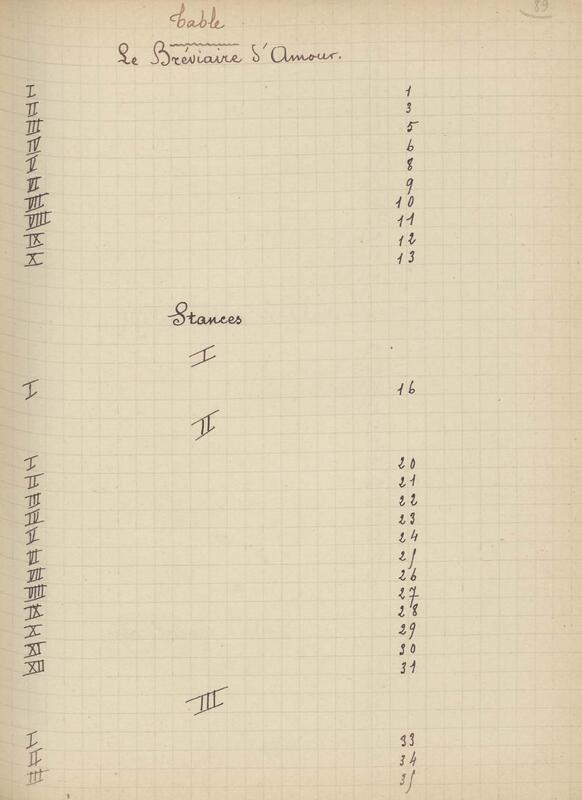 89
Table
Le Bréviaire d'Amour.
I 1
II 3
III 5
IV 6
V 8
VI 9
VII 10
VIII 11
IX 12
X 13
Stances
I
I 16
II
I 20
II 21
III 22
IV 23
V 24
VI 25
VII 26
VIII 27
IX 28
X 29
XI 30
XII 31
III
I 33
II 34
III 35